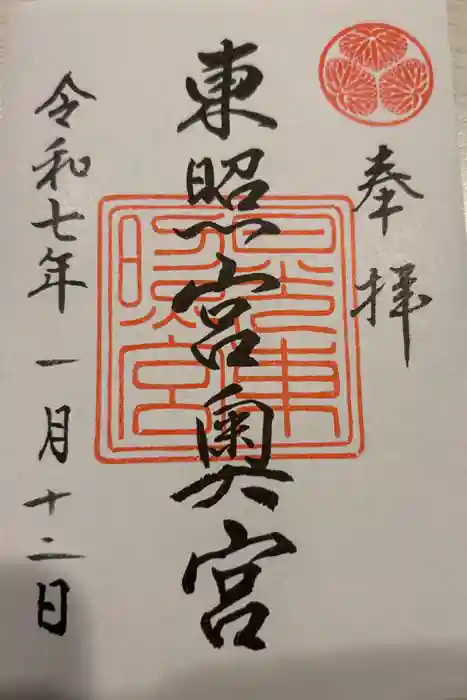 奉拝
東照宮奥宮
日光東照宮
令和七年一月十二日